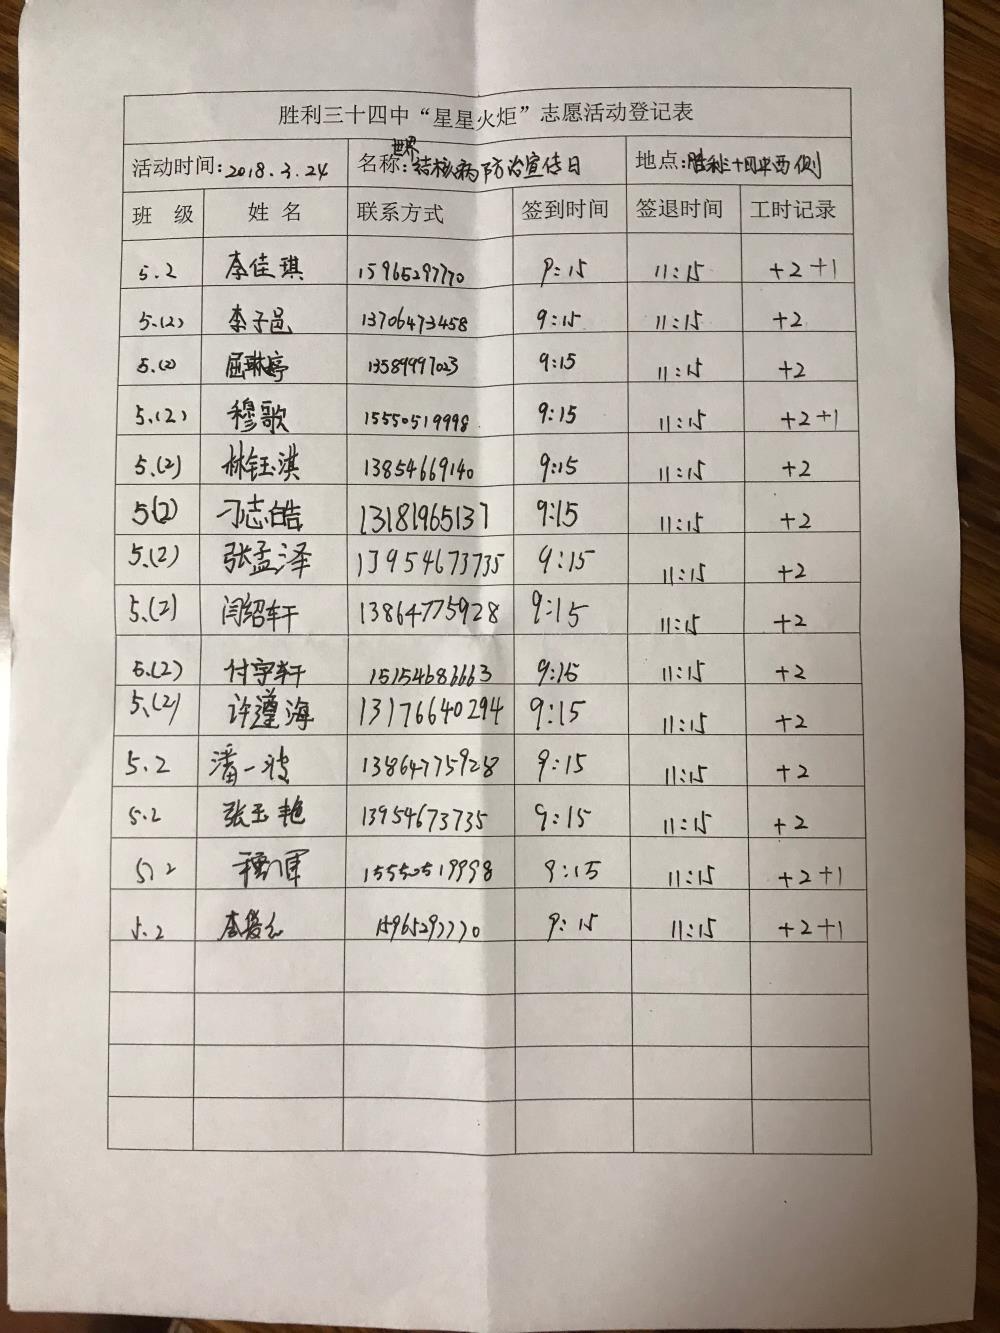 胜利三十四中“星星火炬”志愿活动登记表
活动时间:2018.3.24 名称:世界结核病防治宣传日 地点:胜利三十四中西侧
班 级 姓 名 联系方式 签到时间 签退时间 工时记录
5.2 李佳琪 15965297770 9:15 11:15 +2+1
5.(2) 李子邑 13706473458 9:15 11:15 +2
5.(2) 屈琳婷 13589997023 9:15 11:15 +2
5.(2) 穆歌 15550519998 9:15 11:15 +2+1
5.(2) 林钰淇 13854669140 9:15 11:15 +2
5(2) 刁志皓 13181965137 9:15 11:15 +2
5.(2) 张孟泽 13954673735 9:15 11:15 +2
5.(2) 闫绍轩 13864775928 9:15 11:15 +2
5.(2) 付宇轩 15154686663 9:15 11:15 +2
5.(2) 许蘧海 13176640294 9:15 11:15 +2
5.2 潘一波 13864775928 9:15 11:15 +2
5.2 张玉艳 13954673735 9:15 11:15 +2
5.2 穆军 15550519998 9:15 11:15 +2+1
5.2 李 15965297770 9:15 11:15 +2+1